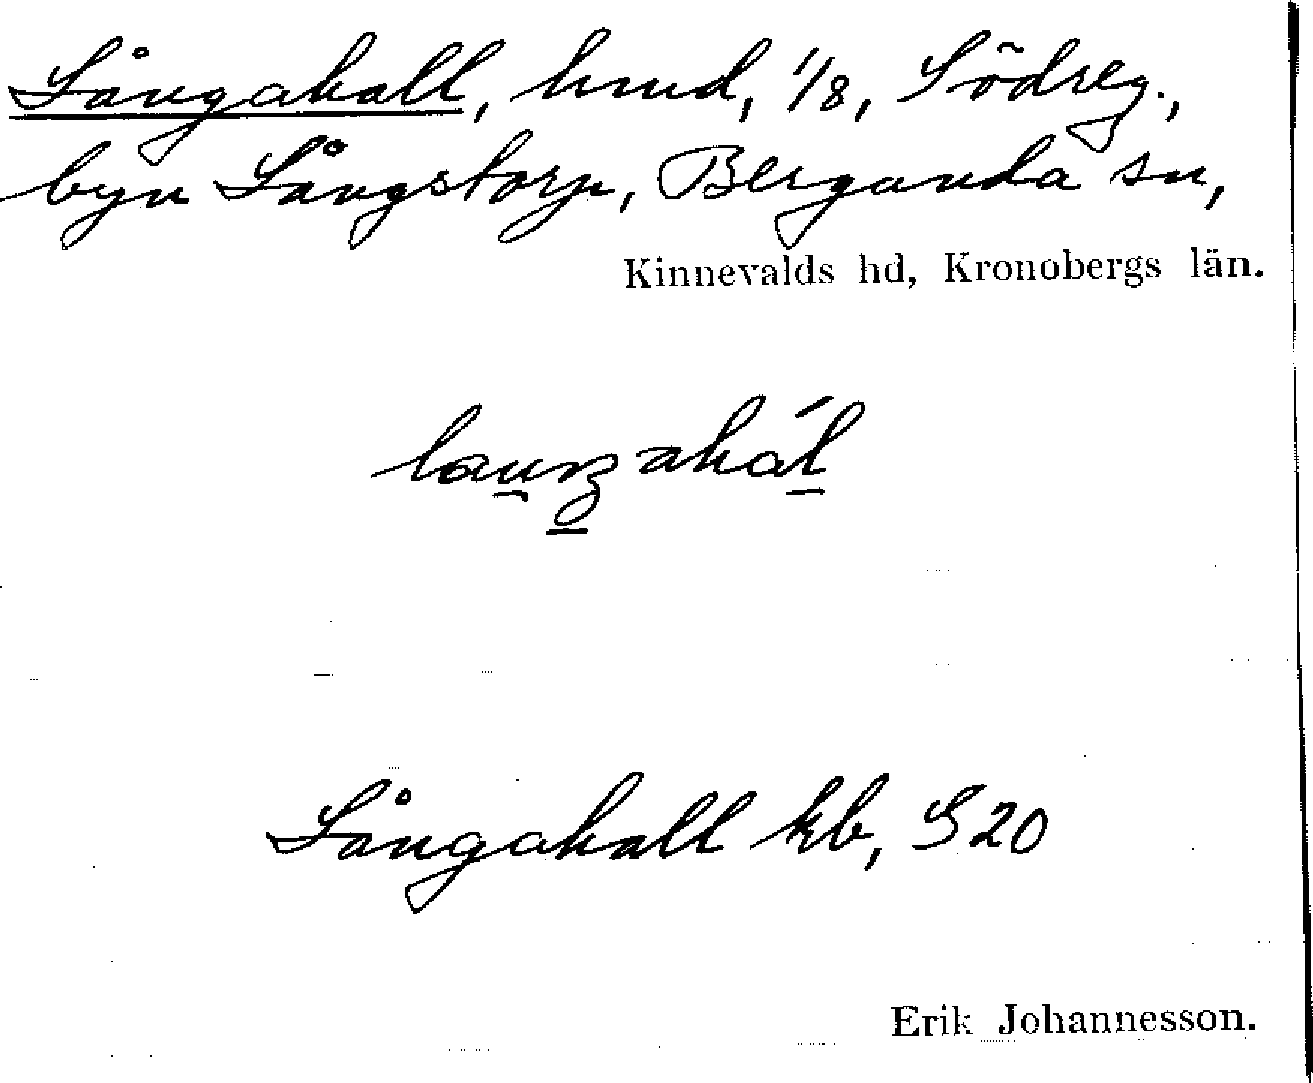 Långahall, hmd, 1/8, Södreg.,
byn Långstorp, Berganda sn,
Kinnevalds hd, Kronobergs län.
Långahall kb, S20
Erik Johannesson.